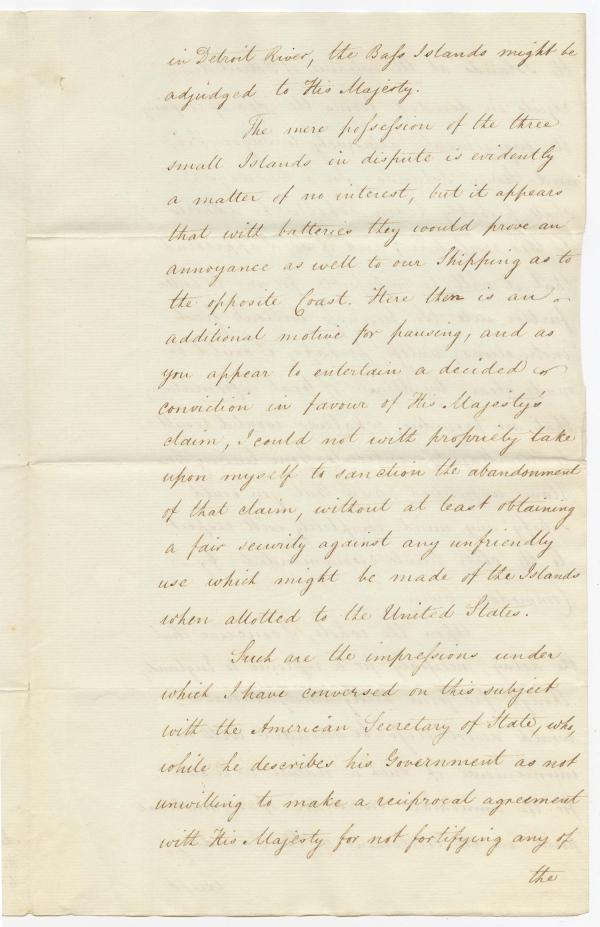 in Detroit River, the Bass Islands might be
adjudged to His Majesty.
The mere possession of the three
small Islands in dispute is evidently
a matter of no interest, but it appears
that with batteries they would prove an
annoyance as well to our Shipping as to
the opposite Coast. Here then is an
additional motive for pausing, and as
you appear to entertain a decided
conviction in favour of His Majesty's
claim, I could not with propriety take
upon myself to sanction the abandonment
of that claim, without at least obtaining
a fair security against any unfriendly
use which might be made of the Islands
when allotted to the United States.
Such are the impressions under
which I have conversed on this subject
with the American Secretary of State, who,
while he describes his Government as not
unwilling to make a reciprocal agreement
with His Majesty for not fortifying any of
the